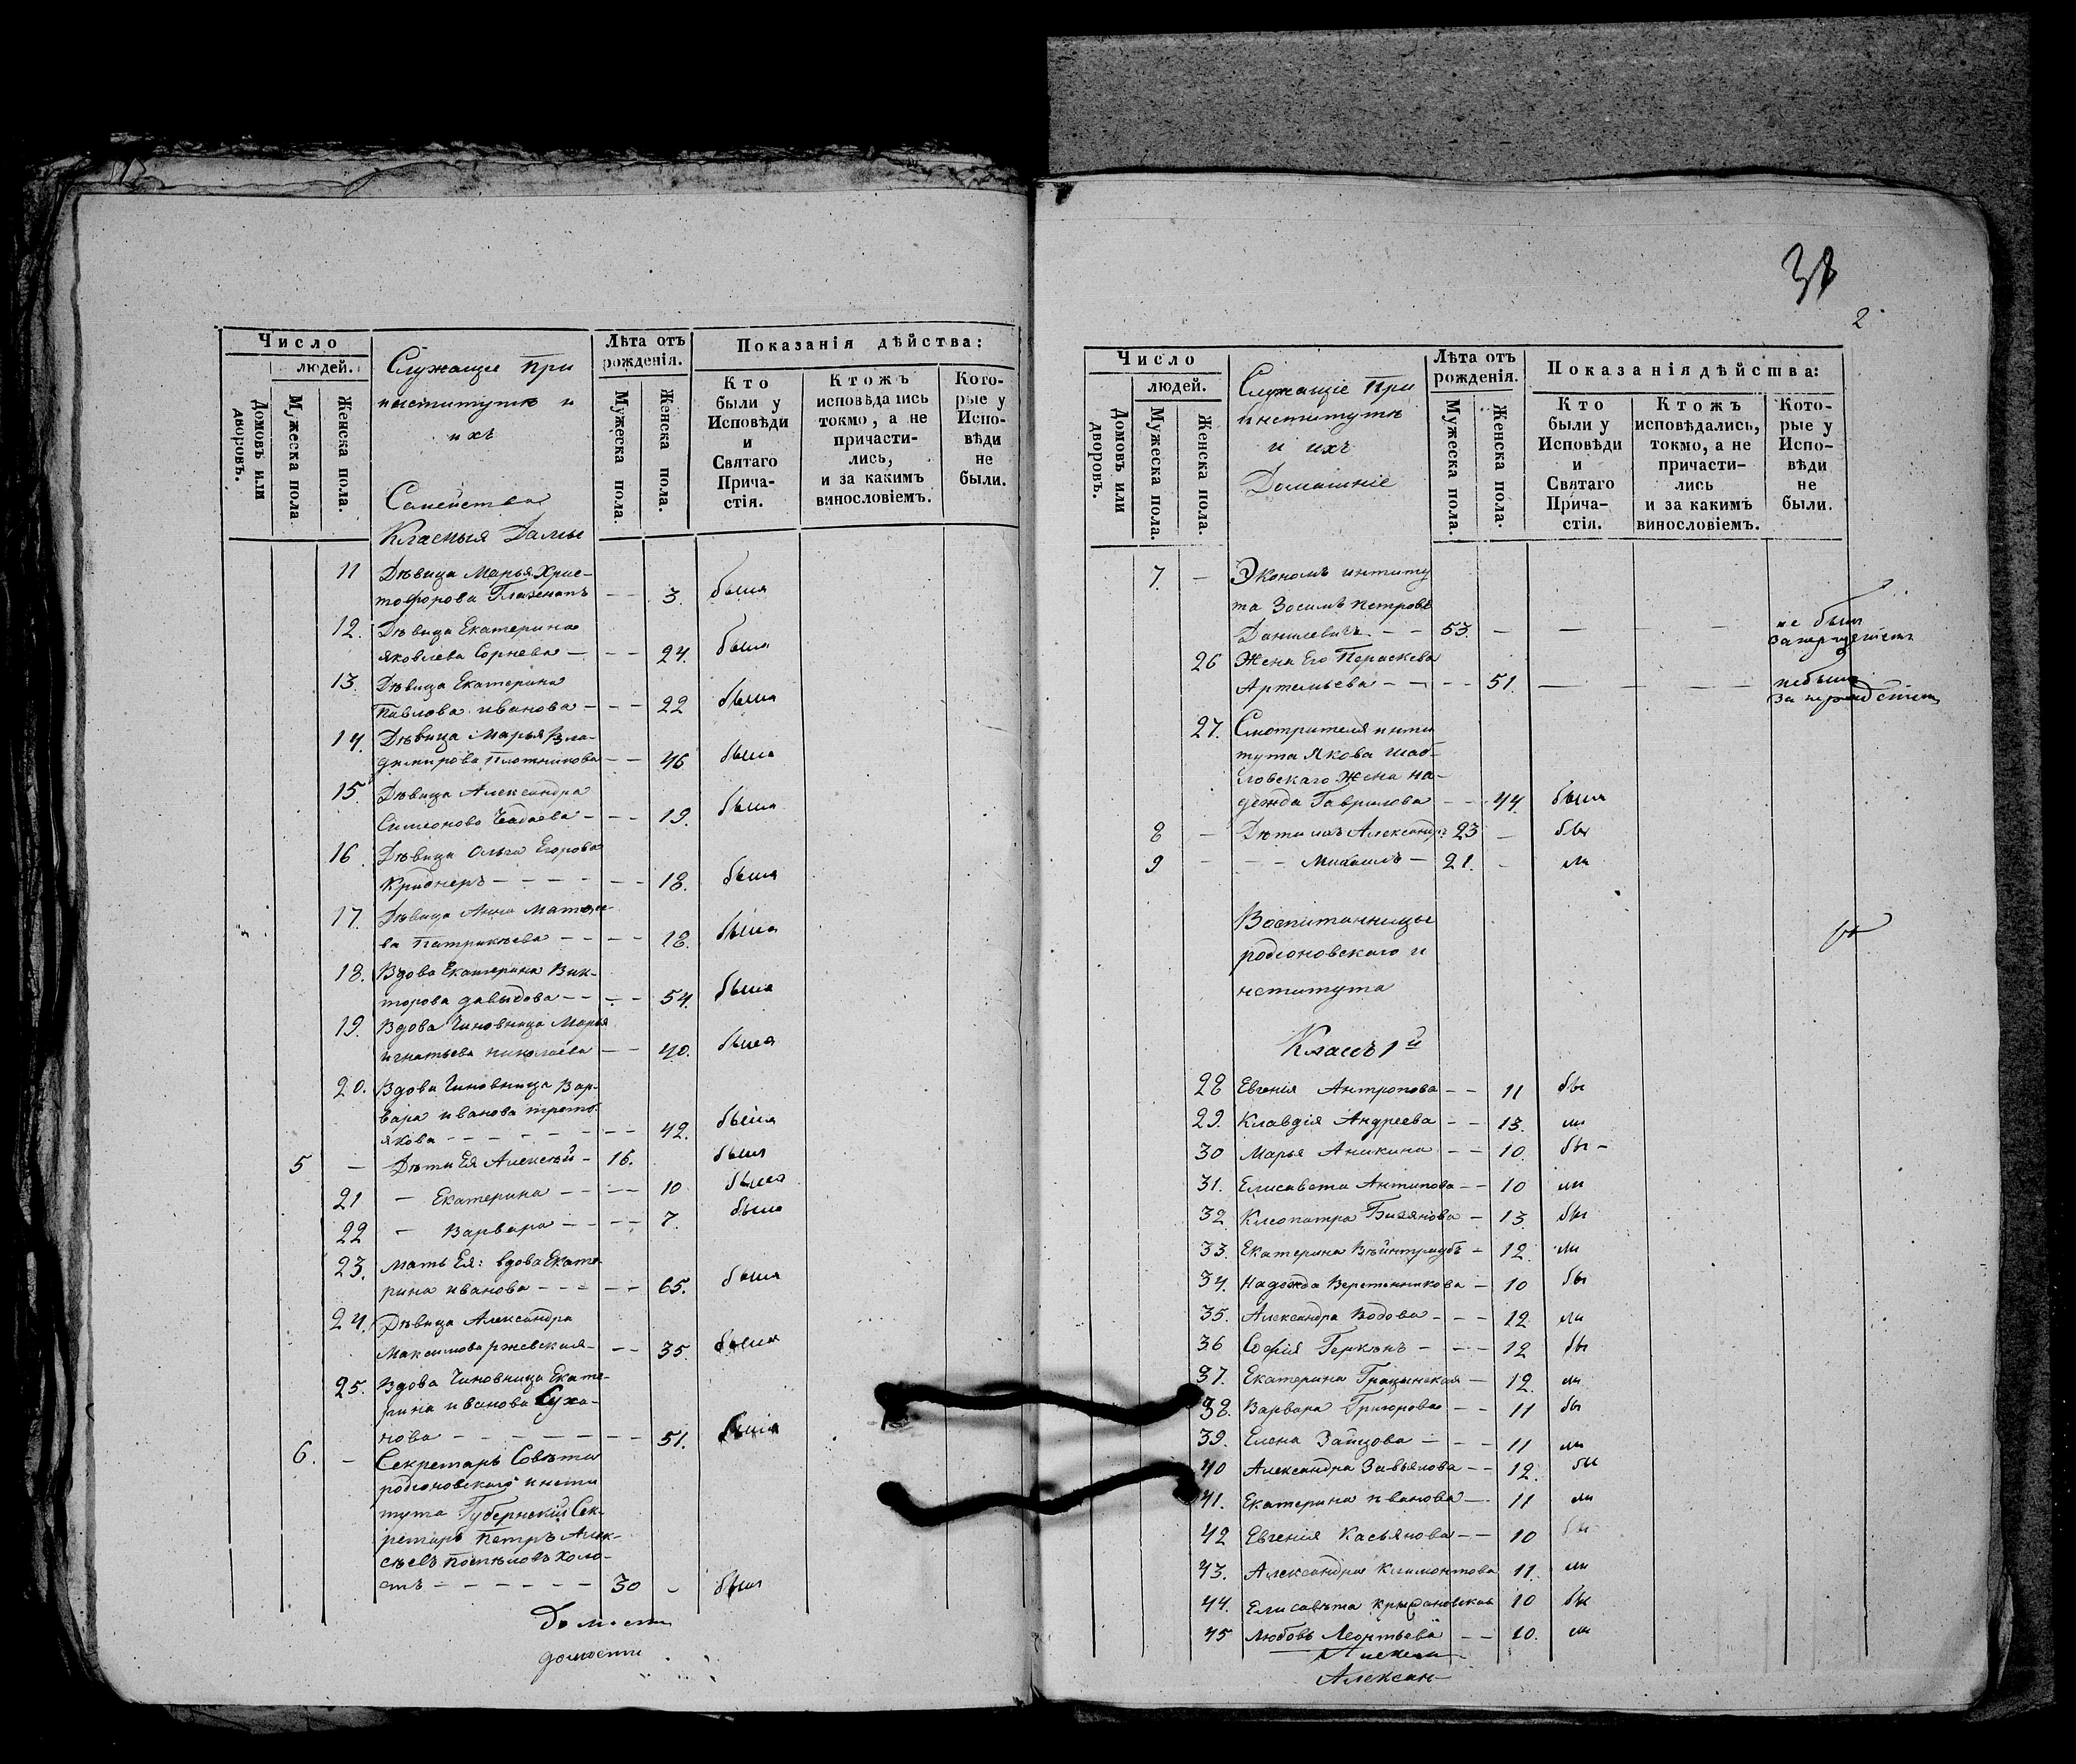 Число
людей.
Домовъ или дворовъ.
Мужеска пола
Женска пола.
Служащіе При
институтѣ и
ихъ
Семейства
Класныя Дамы
Лѣта отъ рожденія.
Мужеска пола.
Женска пола.
Показанія дѣйства:
Кто были у Исповѣди и Святаго Прича-стія.
Ктожъ исповѣдались токмо, а не причасти-лись, и за какимъ винословіемъ.
Кого-рые у Испо-вѣди не были.
11 Дѣвица Марья Хрис-
тофорова Глазенапъ — — 3. была
12. Дѣвица Екатерина
Яковлева Сорнева — — — 24. была
13. Дѣвица Екатерина
Павлова иванова — — — 22 была
14. Дѣвица Марья Вла-
димирова Плотникова — — 46 была
15. Дѣвица Александра
Симеонова — — — 19. была
16. Дѣвица Ольга Егорова
Криднеръ — — — — — — 18. была
17. Дѣвица Анна Матвѣе-
ва Патрикѣева — — — — 18. была
18. Вдова Екатерина Вик-
торова давыдова — — — — 54. была
19. Вдова Чиновница Марья
игнатьева николаева — — 40. была
20. Вдова Чиновница Вар-
вара иванова третья-
якова — — — — — — — — 42. была
5 — Дѣти Ея Алексѣй — 16. былъ
21 — Екатерина — — — — 10 была
22 — Варвара — — — — 7. была
23. Мать Ея: вдова Екате-
рина иванова — — — — — 65. была
24. Дѣвица Александра
Максимова ржевская — — — 35. была
25. Вдова Чиновница Екате-
рина иванова Суха-
нова — — — — — — — — 51. была
6. — Секретарь Совѣта
родіоновскаго инсти
тута Губернскій Сек-
ретарь Петръ Алек-
сѣевъ холо-
стъ — — — — — — 30 — былъ
домости
38
2
Число
людей.
Домовъ или дворовъ.
Мужеска пола.
Женска пола.
Служащіе При
Институтѣ
и ихъ
Домашніе
Лѣта отъ рожденія.
Мужеска пола.
Женска пола.
Показанія дѣйства:
Кто были у Исповѣди и Святаго Прича-стія.
Ктожъ исповѣдались, токмо, а не причасти-лись и за какимъ винословіемъ.
Кото-рые у Испо-вѣди не были.
7. — Экономъ интиту
та Зосимъ петровъ
Данилевичъ — — 53. — — — — не былъ
26 Жена Его Параскева
Артемьева — — — — 51. — — — небыла
27. Смотрителя инти
тута Якова шаб-
ловскаго Жена на-
дежда Гаврилова — — 44. была
8 — Дѣти ихъ Александръ 23 — бы
9 — — — Михаилъ — 21. — ли
Воспитанницы
родіоновскаго и
нститута
Классъ 1й
28 Евгенія Антропова — — 11 бы
29. Клавдія Андреева — — 13. ли
30 Марья Аникина — — 10. бы —
31. Елисавета Антипова — — 10 ли
32. Клеопатра — 13. бы
33. Екатерина Вѣйнтраубъ — 12 ли
34. Надежда Веретенникова — 10 бы
35. Александра Водова — — — 12 ли
36 Софія Геркенъ — — — 12 бы
37. Екатерина Грацинская — 12. ли
38. Варвара Григорова — — 11 бы
39. Елена Зайцова — — — 11 ли
40 Александра Завьялова — — 12. бы
41. Екатерина иванова — 11 ли
42 Евгенія Касьянова — — 10 бы
43. Александра Климонтова 11. ли
44. Елисавѣта крыжановская 10 бы
45 Любовь Леонтьева — — 10. ли
Алексан